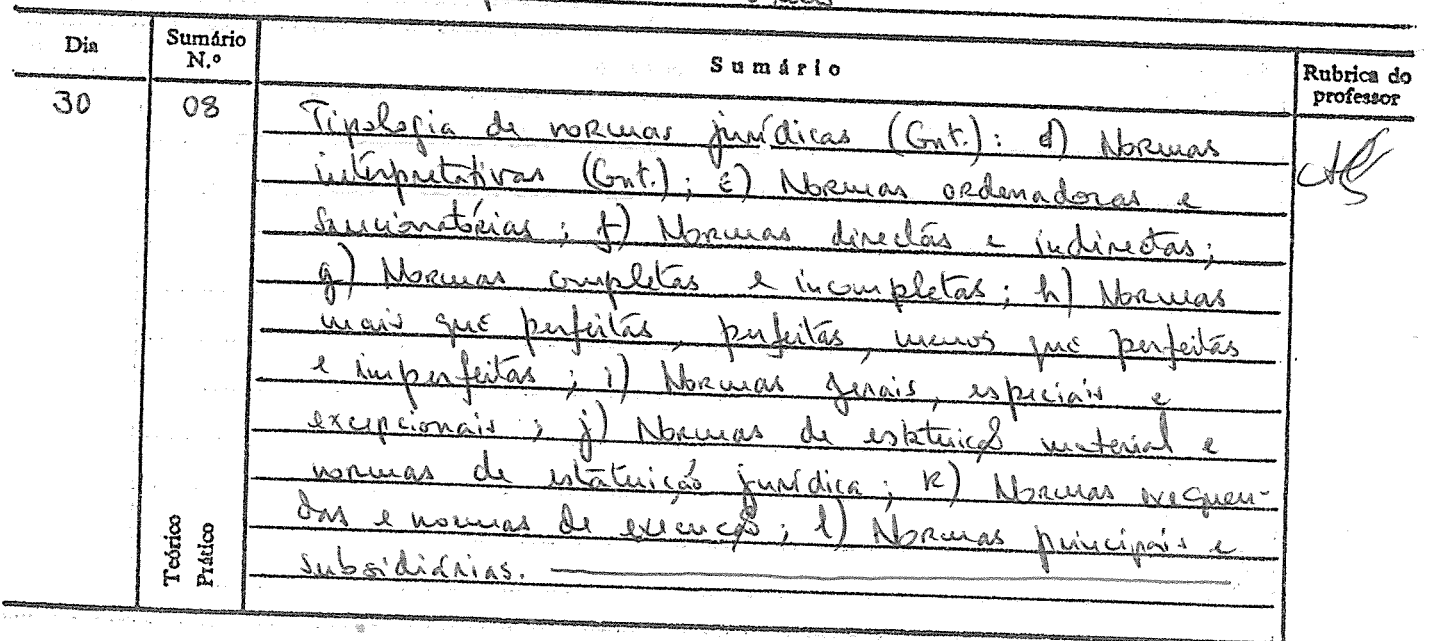 Dia
Sumário N.º
Sumário
Rubrica do professor
30
08
Tipologia de normas jurídicas (Cont.): d) Normas
interpretativas (Cont.); e) Normas ordenadoras e
sancionatórias; f) Normas directas e indirectas;
g) Normas completas e incompletas; h) Normas
mais que perfeitas, perfeitas, menos que perfeitas
e imperfeitas; i) Normas gerais, especiais e
excepcionais; j) Normas de estatuição material e
normas de estatuição jurídica; k) Normas exequen-
das e normas de execução; l) Normas principais e
subsidiárias.
Teórico
Prático